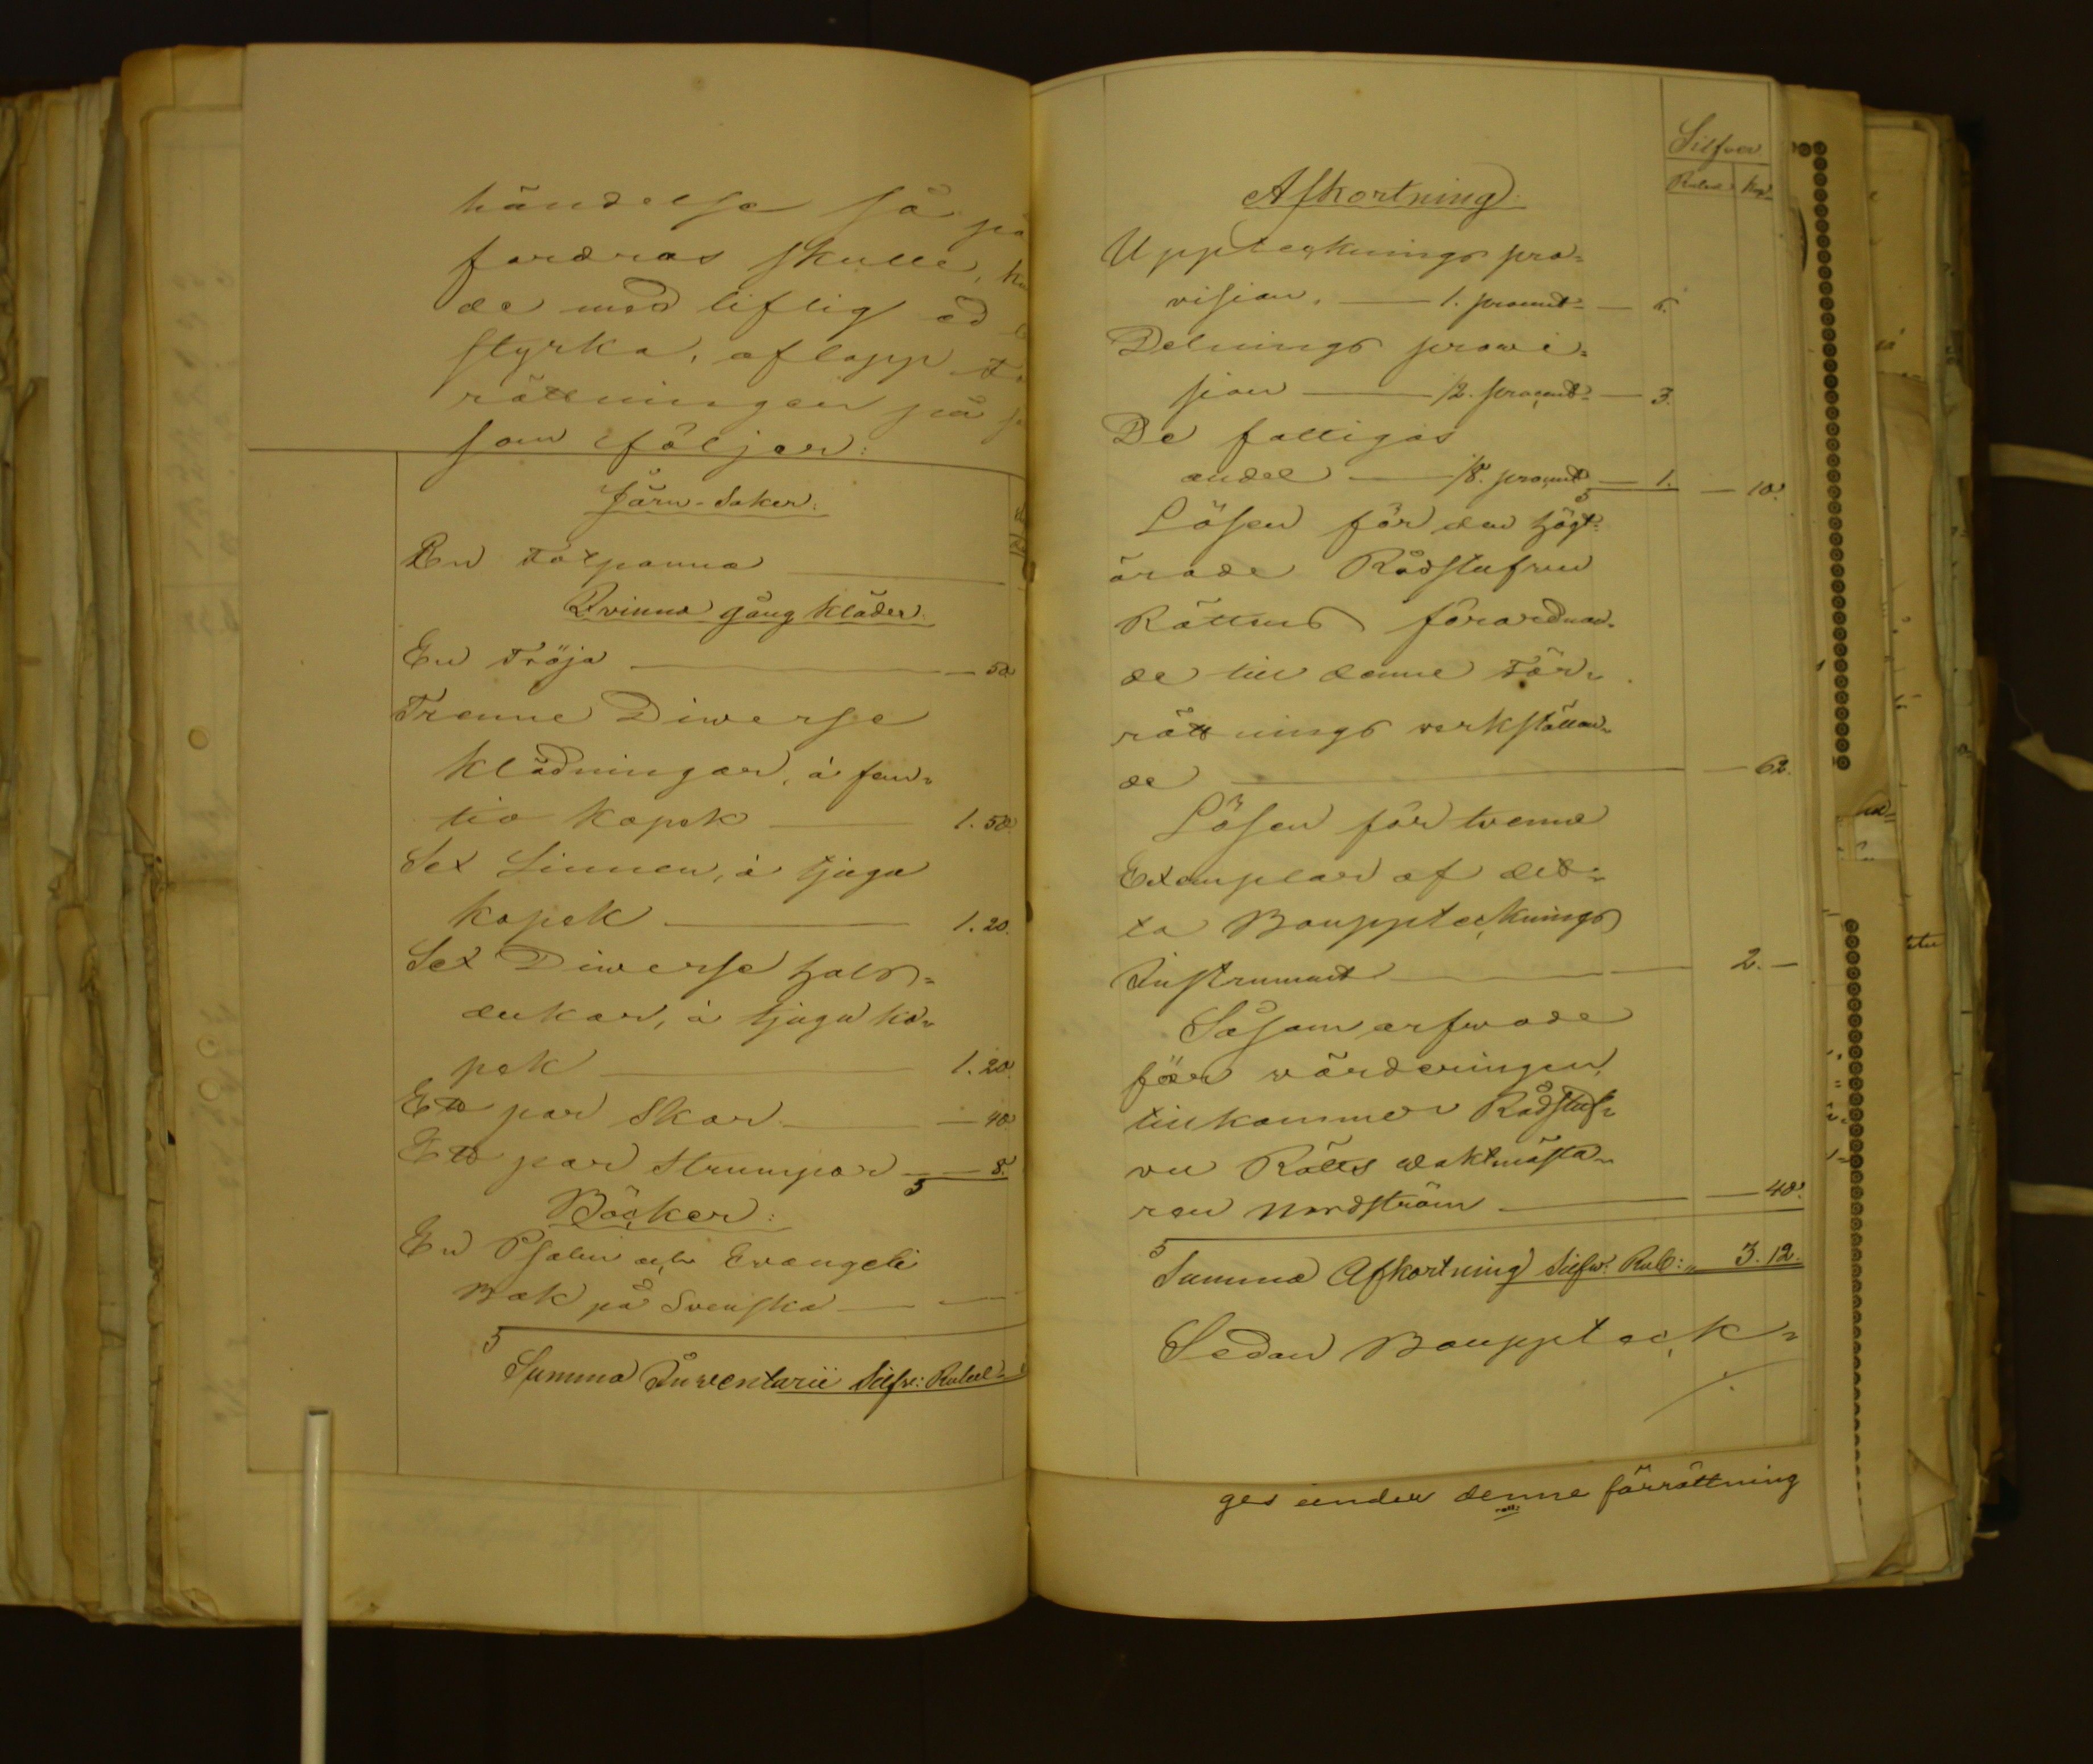 händelse så på
fordras skulle, ku
de med liflig ed
styrka, aflopp
rättningen på
som följer:
Järn-Saker:
En Tolpanna
Qvinno gång kläder:
En Tröja — 50.
Trenne Diwerse
klädningar, á fem-
tio kopek — 1. 50.
Sex Linnen, á tjugu
kopek — 1. 20.
Sex Diwerse hals-
dukar, á tjugu ko-
pek — 1. 20.
Ett par Skor — 40.
Ett par Strumpor — 8.
Böcker:
En Psalm och Evangeli
Bok på Svenska —
Summa Inventarii Silfr: Rubel
Silfver
Rubel Kop.
Afkortning:
Uppteknings pro-
vision. — 1. procent — 6.
Delnings prowi-
sion — 1/2. procent — 3.
De fattigas
andel — 1/8. procent — 1. — 10.
Lösen för den högt-
ärade Rådstufvu
Rättens förordnan-
de till denne För-
rättnings verkställan-
de — 62.
Lösen för tvenne
Exemplar af det-
ta Bouppteknings
Instrument — 2. —
Såsom arfwode
för wärderingen,
tillkommer Rådstuf-
vu Rätts waktmästa-
ren Nordström — 40.
Summa Afkortning Silfw. Rub: 3. 12.
Sedan Bouppteck-
./.
ges under denne förrättning